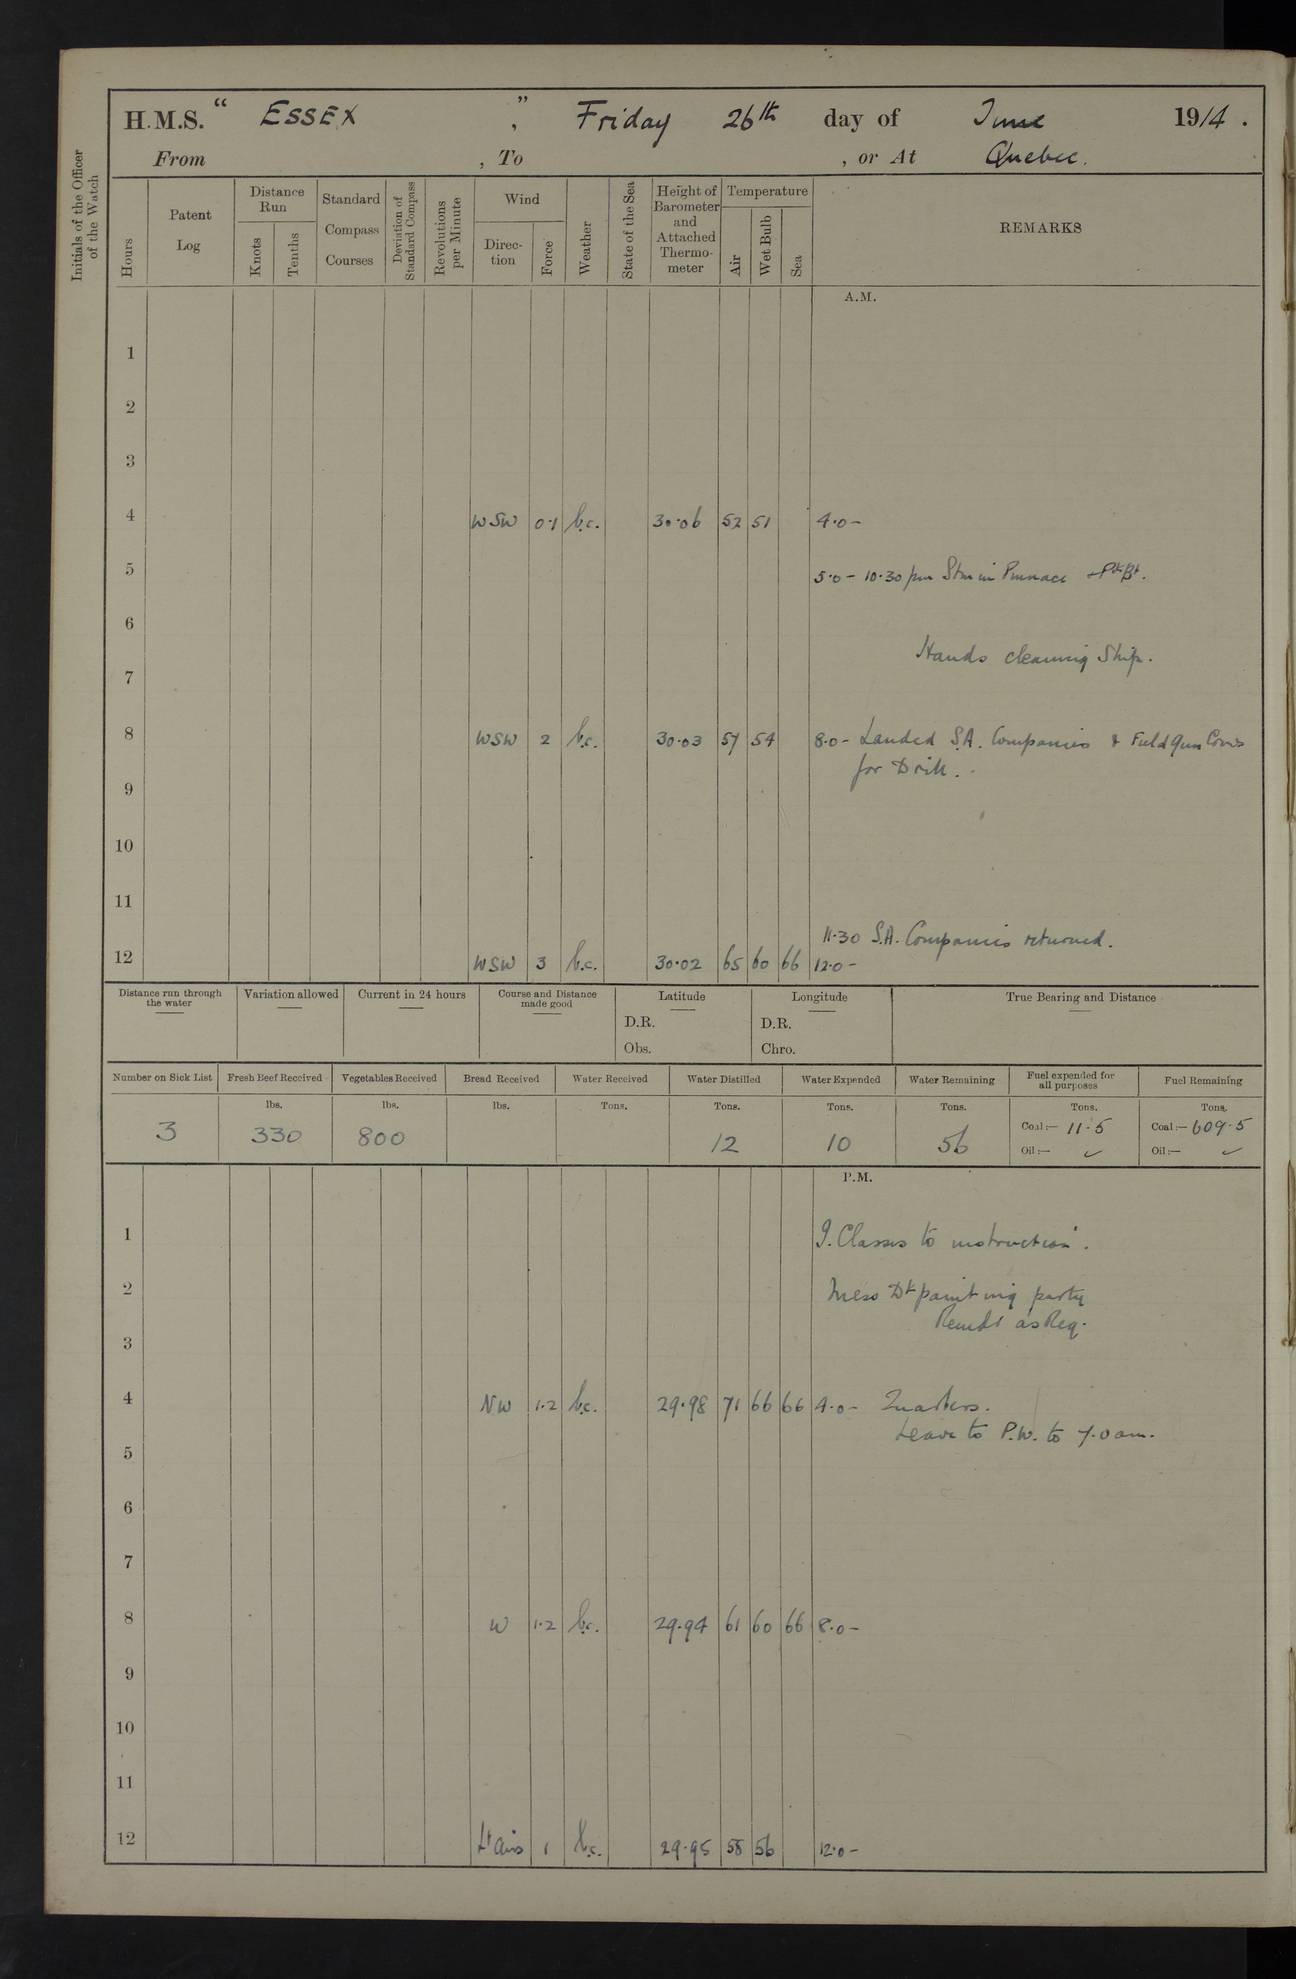 H.M.S. " ESSEX ", Friday 26th day of June 1914.
From , To , or At Quebec.
Initials of the Officer of the Watch
Hours
Patent Log
Distance Run
Knots
Tenths
Standard Compass Courses
Deviation of Standard Compass
Revolutions per Minute
Wind
Direction
Force
Weather
State of the Sea
Height of Barometer and Attached Thermometer
Temperature
Air
Wet Bulb
Sea
REMARKS
A.M.
1
2
3
4 WSW 0.1 b.c. 30.06 52 51 4.0-
5 5.0- 10.30 pm Stm in Pinnace + Pkt Bt.
6
Hands cleaning Ship.
7
8 WSW 2 b.c. 30.03 57 54 8.0- Landed S.A. Companies & Field Gun Crews
for Drill.
9
10
11
11.30 S.A. Companies returned.
12 WSW 3 b.c. 30.02 65 60 66 12.0-
Distance run through the water
Variation allowed
Current in 24 hours
Course and Distance made good
Latitude
D.R.
Obs.
Longitude
D.R.
Chro.
True Bearing and Distance
Number on Sick List 3
Fresh Beef Received lbs. 330
Vegetables Received lbs. 800
Bread Received lbs.
Water Received Tons.
Water Distilled Tons. 12
Water Expended Tons. 10
Water Remaining Tons. 56
Fuel expended for all purposes Tons.
Coal:- 11.5
Oil:- ✓
Fuel Remaining Tons.
Coal:- 609.5
Oil:- ✓
P.M.
1 I. Classes to instruction.
2 Mess Dk painting party
Remdr as Req.
3
4 NW 1.2 b.c. 29.98 71 66 66 4.0- Quarters.
Leave to P.W. to 7.0 am.
5
6
7
8 W 1.2 b.c. 29.94 61 60 66 8.0-
9
10
11
12 Lt airs 1 b.c. 29.95 58 56 12.0-